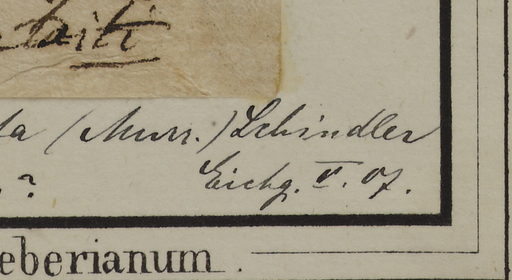 ta (Murr.) Schindler
? Eichg. V. 07.
eberianum.